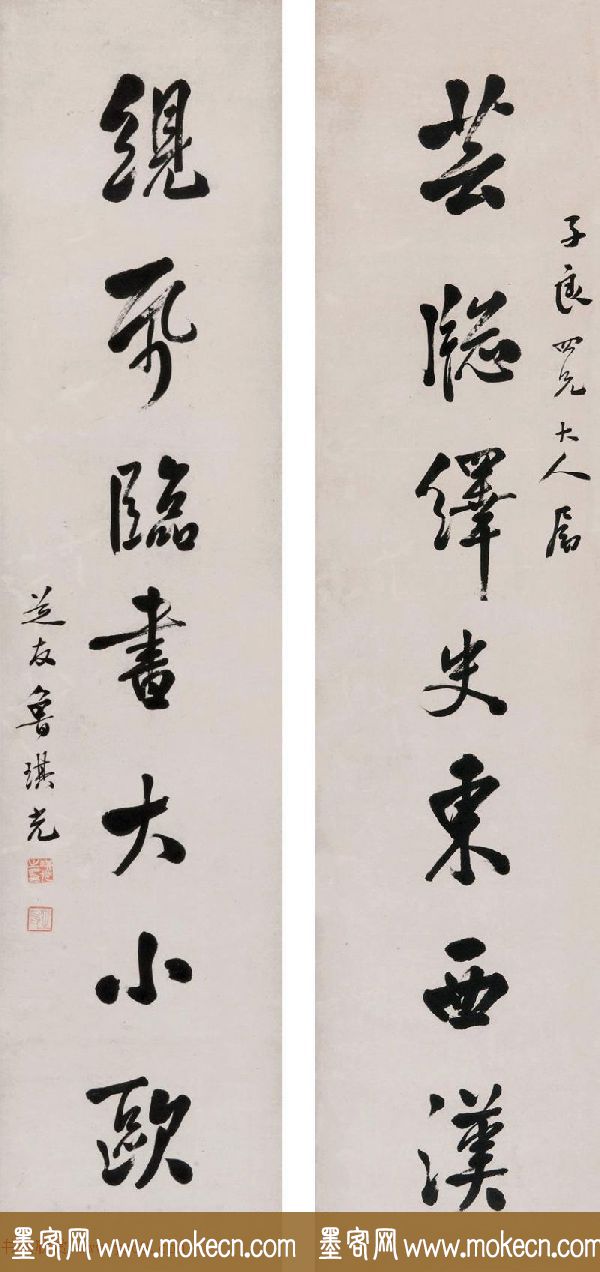 子良四兄大人屬
芸牕繹史東西漢
絸帋臨書大小歐
芝友魯琪光
墨客网 www.mokecn.com
墨客网 www.mokecn.com